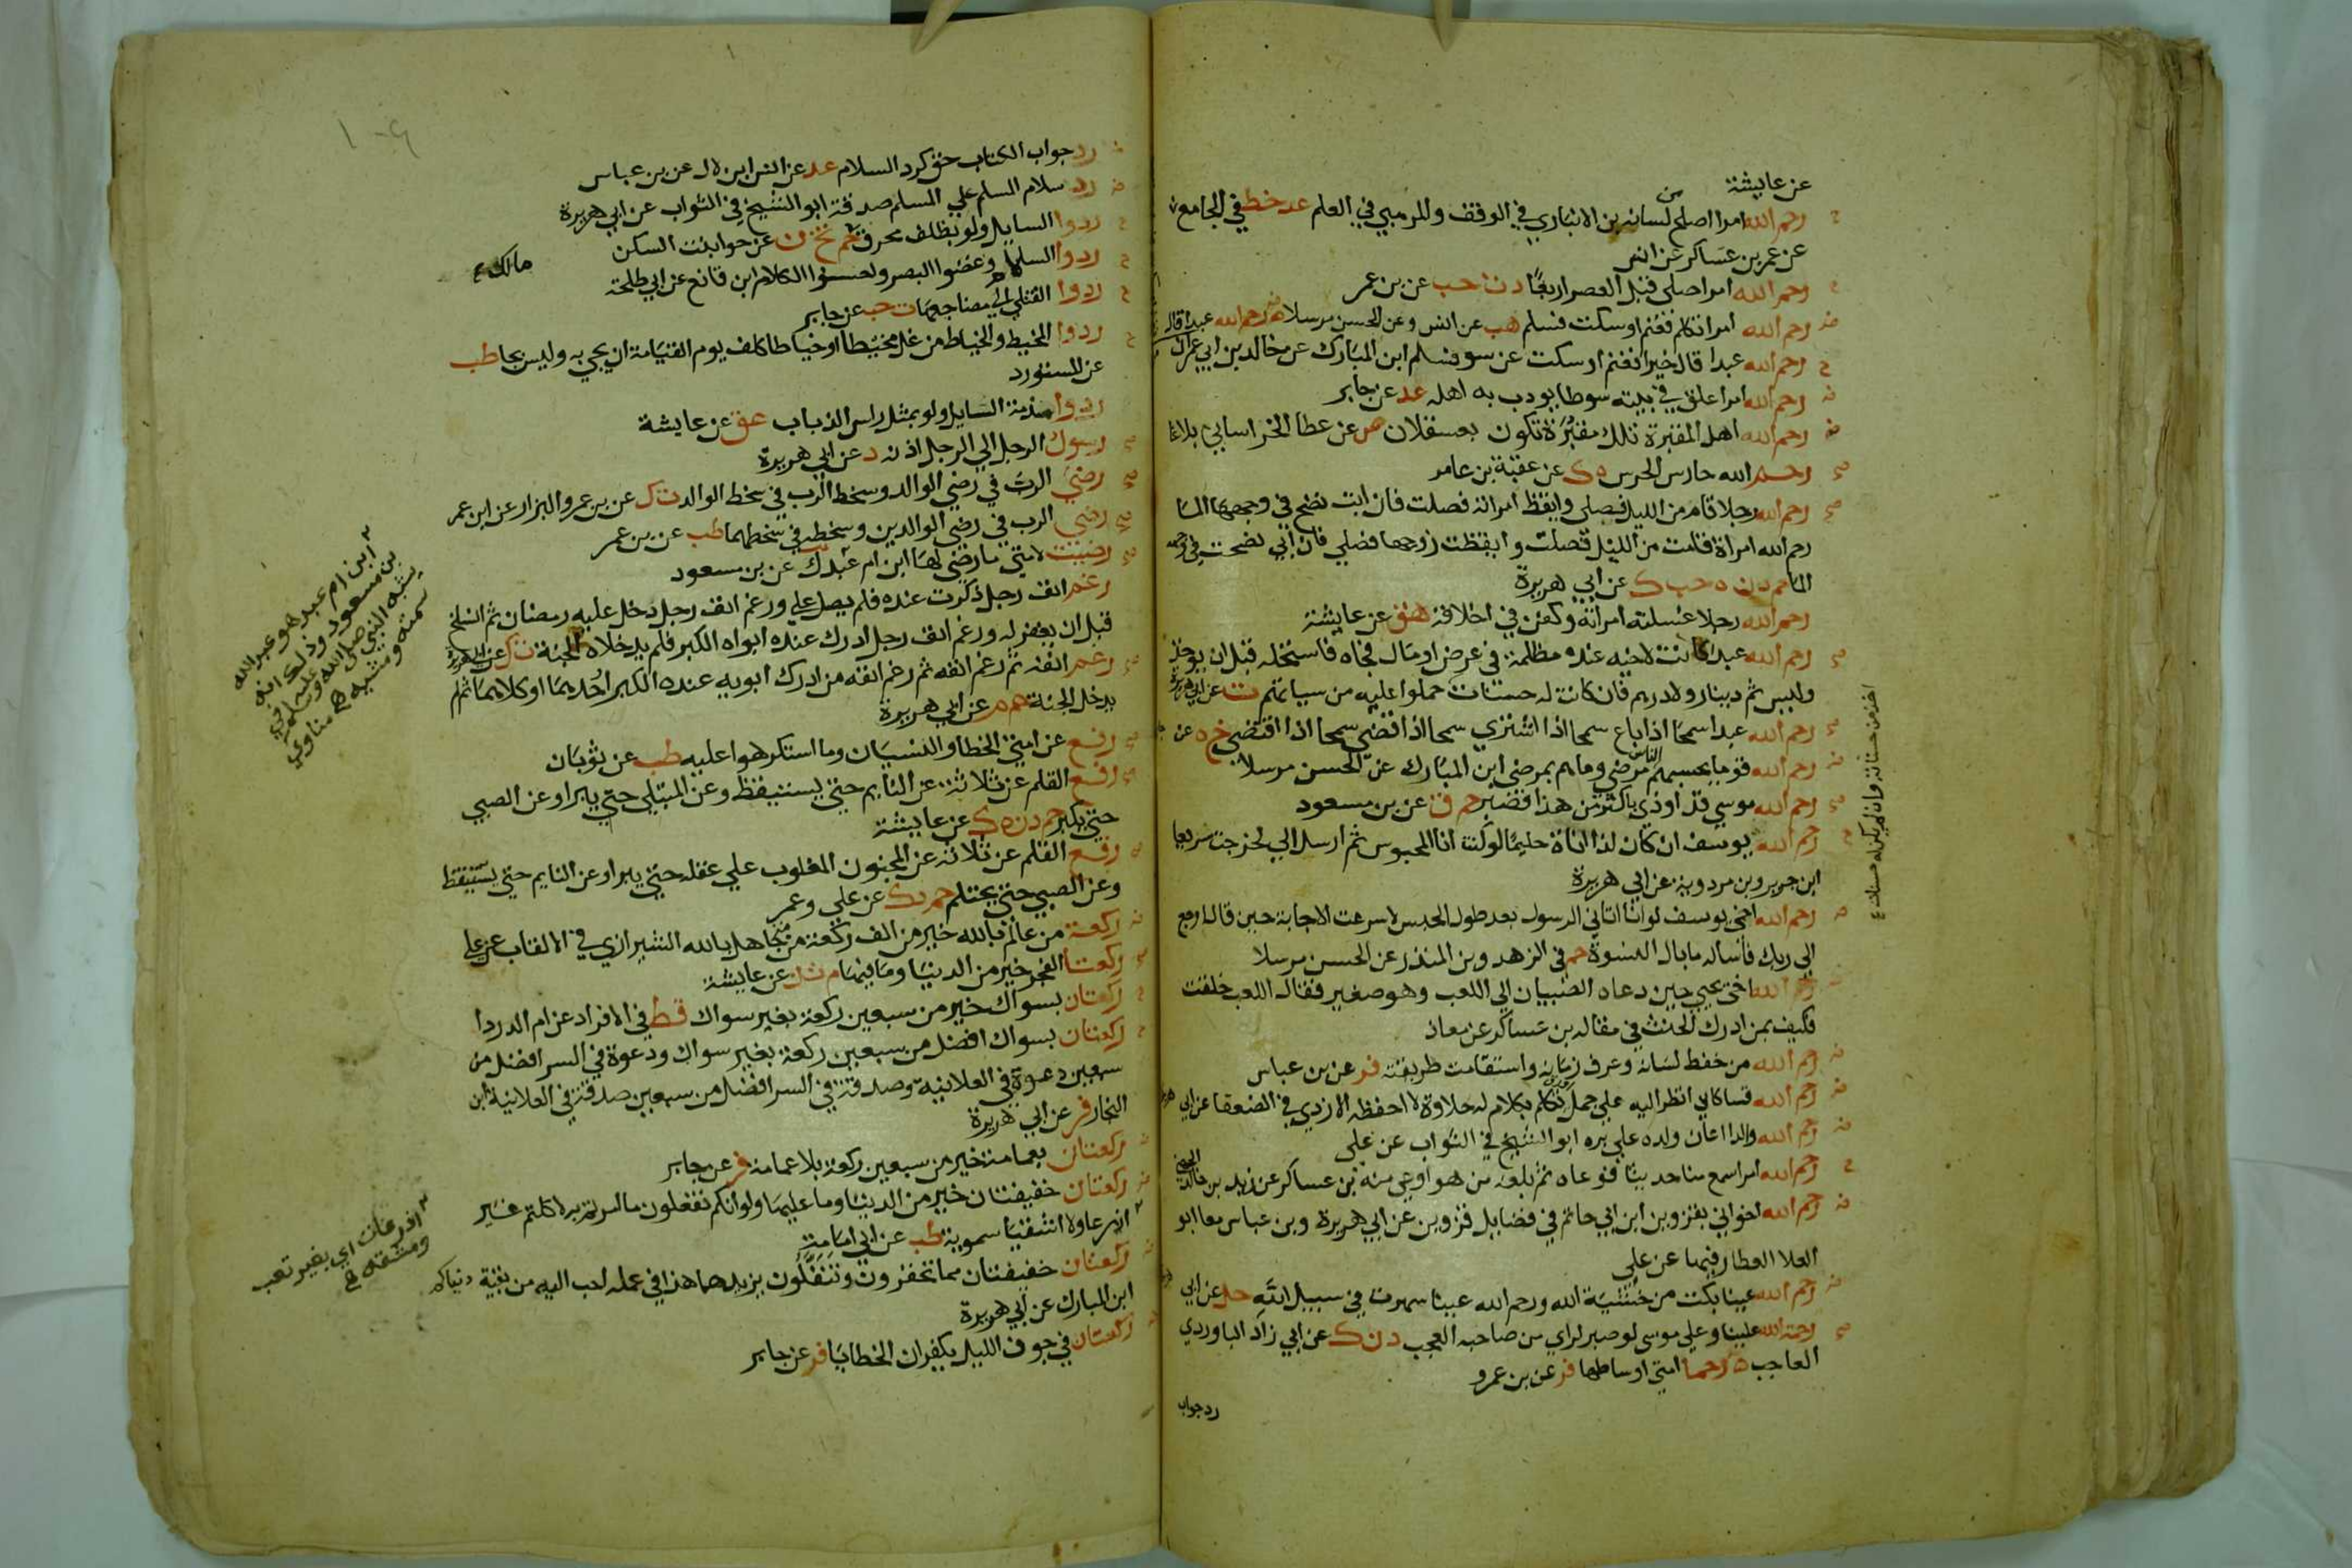 عن عايشة
رحم الله امرا اصلح من لسانه بن الانباري في الوقف والمرهبي في العلم عد خط في الجامع
عن عمر بن عساكر عن انس
رحم الله امرا صلى قبل العصر اربعًا د ت حب عن بن عمر
رحم الله امرا تكلم فغنم او سكت فسلم هب عن انس وعن الحسن مرسلا رحم الله عبدا قال
رحم الله عبدا قال خيرا فغنم او سكت عن سو فسلم ابن المبارك عن خالد بن ابي عمران
رحم الله امرا علق في بيته سوطا يودب به اهله عد عن جابر
رحم الله اهل المقبرة تلك مقبرة تكون بعسقلان ص عن عطا الخراساني بلاغا
رحم الله حارس الحرس ه ك عن عقبة بن عامر
رحم الله رجلا قام من الليل فصلى وايقظ امراته فصلت فان ابت نضح في وجهها الما
رحم الله امراة قامت من الليل فصلت وايقظت زوجها فصلي فان ابي نضحت في وجهه
الما حم د ن ه حب ك عن ابي هريرة
رحم الله رجلا غسلته امراته وكفن في اخلاقه هق عن عايشة
رحم الله عبدا كانت لاخيه عنده مظلمة في عرض او مال فجاه فاستحله قبل ان يوخذ
وليس ثم دينار ولا درهم فان كانت له حسنات حملوا عليه من سياتهم ت عن ابي هريرة
رحم الله عبدا سمحا اذا باع سمحا اذا اشتري سمحا اذا قضى سمحا اذا اقتضى خ ه عن
رحم الله قوما يحسبهم الناس مرضي وما هم بمرضي ابن المبارك عن الحسن مرسلا
رحم الله موسي قد اوذي باكثر من هذا فصبر حم ق عن بن مسعود
رحم الله يوسف ان كان لذا اناة حليمًا لو كنت انا المحبوس ثم ارسل الي لخرجت سريعا
ابن جرير وبن مردوية عن ابي هريرة
رحم الله اخي يوسف لو انا اتاني الرسول بعد طول الحبس لاسرعت الاجابة حين قال ارجع
الى ربك فاساله ما بال النسوة حم في الزهد وبن المنذر عن الحسن مرسلا
رحم الله اخي يحيي حين دعاه الصبيان الي اللعب وهو صغير فقال اللعب خلقت
فكيف بمن ادرك الحنث في مقاله بن عساكر عن معاذ
رحم الله من حفظ لسانه وعرف زمانه واستقامت طريقته فر عن بن عباس
رحم الله قسا كاني انظر اليه على جمل تكلم بكلام له حلاوة لا احفظه الازدي في الضعفا عن ابي
رحم الله والدا اعان ولده علي بره ابو الشيخ في الثواب عن على
رحم الله امرا سمع منا حديثا فوعاه ثم بلغه من هو اوعى منه بن عساكر عن زيد بن خالد الجهني
رحم الله اخواني بقزوين ابن ابي حاتم في فضايل قزوين عن ابي هريرة وبن عباس معا ابو
العلا العطار فيها عن علي
رحم الله عينا بكت من خشية الله ورحم الله عينا سهرت في سبيل الله حل عن ابي
رحمة الله علينا وعلي موسى لو صبر لراي من صاحبه العجب د ن ك عن ابي زاد الباوردي
العاجب رحما امتي اوساطها فر عن بن عمرو
رد جواب
اخذ من حسناته وان لم يكن له حسنات
رد جواب الكتاب حق كرد السلام عد عن انس ابن لال عن بن عباس
رد سلام المسلم علي المسلم صدقة ابو الشيخ في الثواب عن ابي هريرة
ردوا السايل ولو بظلف محرق حم تخ ن عن حوا بنت السكن
ردوا السلام وغضوا البصر واحسنوا الكلام ابن قانع عن ابي طلحة
ردوا القتلي الي مضاجعها ت حب عن جابر
ردوا المخيط والخياط من غل مخيطا او خياطا كلف يوم القيامة ان يجي به وليس بجا طب
عن المستورد
ردوا مذمة السايل ولو بمثل راس الذباب عق عن عايشة
رسول الرجل الي الرجل اذنه د عن ابي هريرة
رضي الرب في رضي الوالد وسخط الرب في سخط الوالد ت ك عن بن عمرو البزار عن ابن عمر
رضي الرب في رضي الوالدين وسخطه في سخطهما طب عن بن عمر
رضيت لامتي ما رضي لها ابن ام عبد ك عن بن مسعود
رغم انف رجل ذكرت عنده فلم يصل علي ورغم انف رجل دخل عليه رمضان ثم انسلخ
قبل ان يغفر له ورغم انف رجل ادرك عنده ابواه الكبر فلم يدخلاه الجنة ت ك عن ابي هريرة
رغم انفه ثم رغم انفه ثم رغم انفه من ادرك ابويه عنده الكبر احدهما او كلاهما ثم لم
يدخل الجنة حم م عن ابي هريرة
رفع عن امتي الخطا والنسيان وما استكرهوا عليه طب عن ثوبان
رفع القلم عن ثلاثة عن النايم حتي يستيقظ وعن المبتلي حتي يبرا وعن الصبي
حتي يكبر حم د ن ه ك عن عايشة
رفع القلم عن ثلاثة عن المجنون المغلوب علي عقله حتي يبرا وعن النايم حتي يستيقظ
وعن الصبي حتي يحتلم حم د ك عن علي وعمر
ركعة من عالم بالله خير من الف ركعة من متجاهل بالله الشيرازي في الالقاب عن علي
ركعتا الفجر خير من الدنيا وما فيها م ت ن عن عايشة
ركعتان بسواك خير من سبعين ركعة بغير سواك قط في الافراد عن ام الدردا
ركعتان بسواك افضل من سبعين ركعة بغير سواك ودعوة في السر افضل من
سبعين دعوة في العلانية وصدقة في السر افضل من سبعين صدقة في العلانية ابن
النجار فر عن ابي هريرة
ركعتان بعمامة خير من سبعين ركعة بلا عمامة فر عن جابر
ركعتان خفيفتان خير من الدنيا وما عليها ولو انكم تفعلون ما امرتم به لاكلتم غير
اذرعا ولا اشقيا سموية طب عن ابي امامة
ركعتان خفيفتان مما تحقرون وتنفلون يزيدهما هذا في عمله احب اليه من بقية دنياكم
ابن المبارك عن ابي هريرة
ركعتان في جوف الليل يكفران الخطايا فر عن جابر
مالك
ابن ام عبد هو عبد الله
بن مسعود وذلك انه
يشبه النبي صلى الله عليه وسلم في
سمته ومشيه مناوي
اذرعات اي بغير تعب
ومشقة